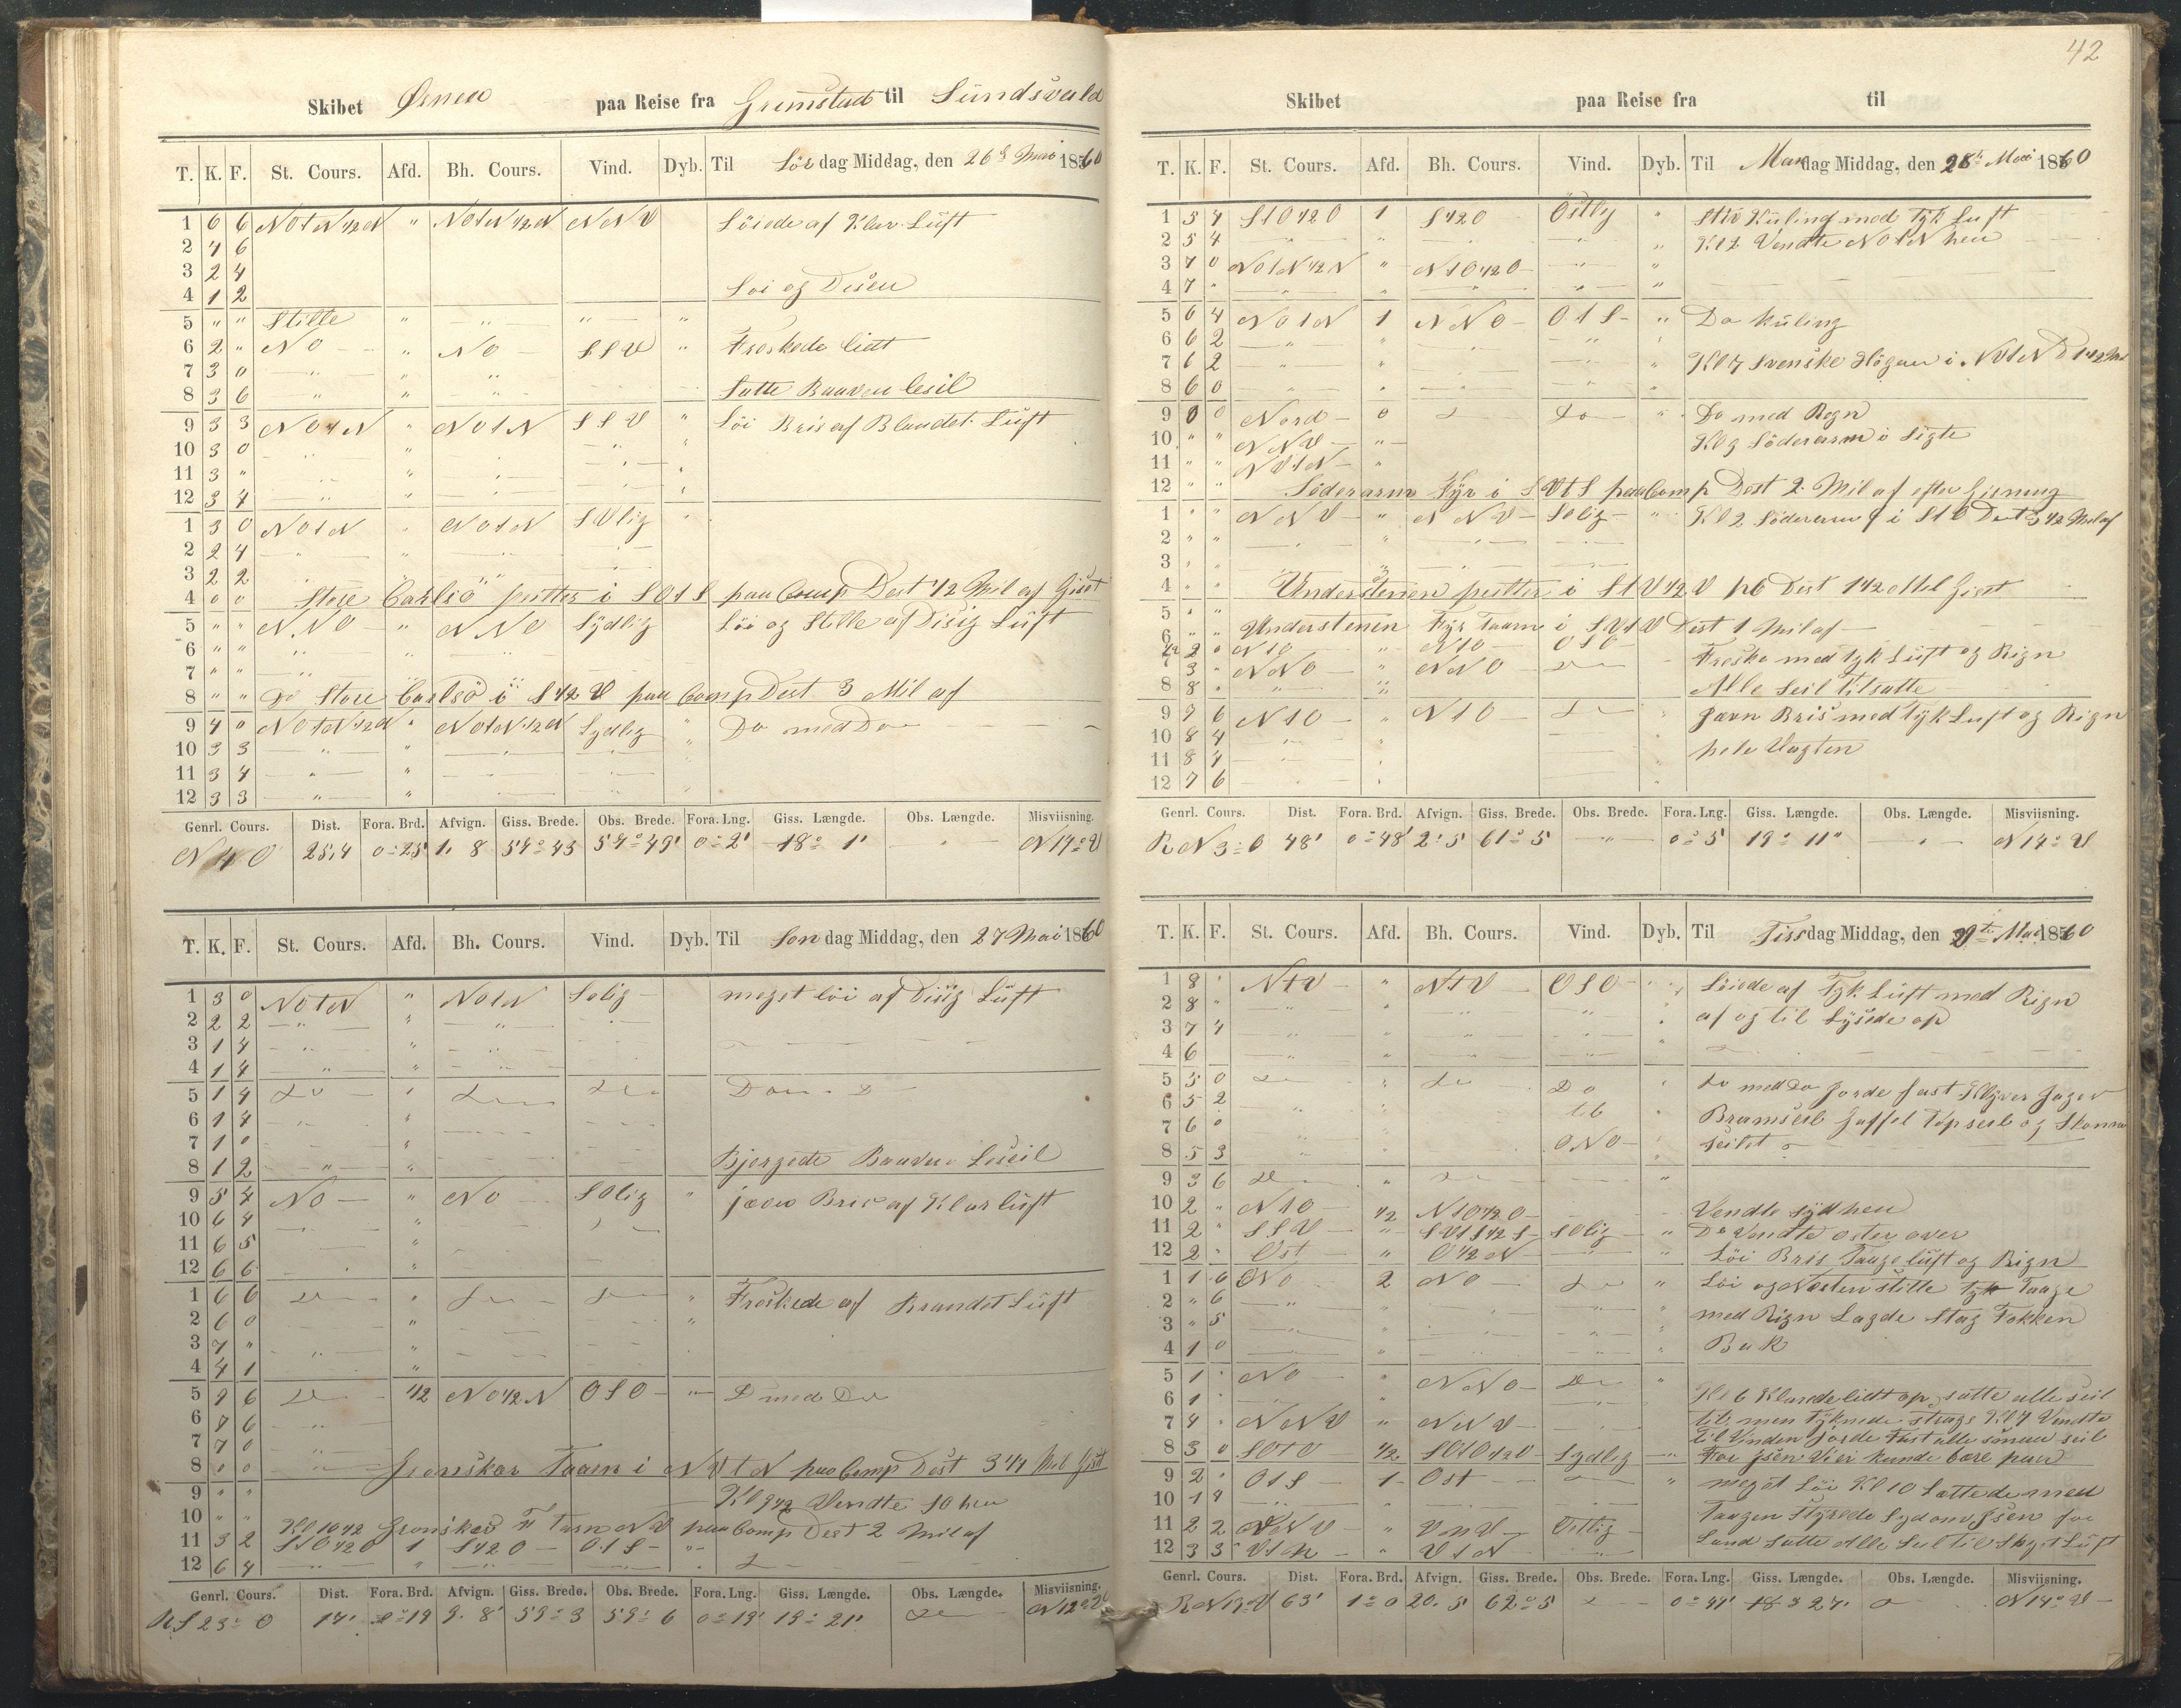 Skibet Ørnen paa Reise fra Grimstad til Sundsvald
T. K. F. St. Cours. Afd. Bh. Cours. Vind. Dyb. Til Lör dag Middag, den 26de Mai 1860
1 6 6 NOtN 1/2 N " NOtN 1/2 N NNV Löiede af Klar Luft
2 4 6
3 2 4
4 1 2 Löi og Disen
5 " " Stille " " " "
6 2 " NO " NO SSV " Freskede lidt
7 3 0 " " "
8 3 6 " " " Satte Baaven leseil
9 3 3 NOtN " NOtN SSV " Löi Bris af Blandet Luft
10 3 0 " " " " "
11 3 " " " " " "
12 3 4 " " " " "
1 3 0 NOtN " NOtN SVlig "
2 2 4 " " " "
3 2 2 " "
4 0 0 Store Carlsö peittes i SOtS paa Comp Dest 1/2 Mil af Gist
5 " " NNO " NNO Sydlig Löi og Stille af Disig Luft
6 " " " " "
7 " " "
8 " " Do Store Carlsö i S 1/2 V paa Comp Dest 3 Mil af
9 4 0 NOtN 1/2 N " NOtN 1/2 N Sydlig " Do med Do
10 3 3 " " " " "
11 3 4 " " " "
12 3 3 " " "
Genrl. Cours. Dist. Fora. Brd. Afvign. Giss. Brede. Obs. Brede. Fora. Lng. Giss. Længde. Obs. Længde. Misviisning.
N 4 O 25,4 0°25' 1. 8 57° 43 57° 49' 0° 2' 18° 1' " N 14° V
T. K. F. St. Cours. Afd. Bh. Cours. Vind. Dyb. Til Søn dag Middag, den 27 Mai 1860
1 3 0 NOtN " NOtN Solig meget löi af Disig Luft
2 2 2 " " " "
3 1 4 " " "
4 1 4 " " "
5 1 4 Do " Do Do Do D
6 1 4 " "
7 1 0 "
8 1 2 " " Bjergede Baaven Leseil
9 5 4 NO " NO SOlig " jævn Bris af Klar luft
10 6 4 "
11 6 5 "
12 6 6 "
1 6 6 Do " Do Do " Freskede af Brandet Luft
2 6 0 " "
3 7 " " "
4 4 1 "
5 9 6 Do 1/2 NO 1/2 N OSO " D med Do
6 8 6 "
7 7 0 "
8 0 0 " Grönskär Taarn i NVtN paa Comp Dest 3 1/4 Mil Gist
9 " " Kl 9 1/2 Vendte SO hen
10 " " Kl 10 1/2 Grönskär F Tarn NV paa Comp Dest 2 Mil af
11 3 2 StO 1/2 O 1 S 1/2 O OtS "
12 6 4 " " " "
Genrl. Cours. Dist. Fora. Brd. Afvign. Giss. Brede. Obs. Brede. Fora. Lng. Giss. Længde. Obs. Længde. Misviisning.
R S 23° O 14' 0° 19 9. 8' 59° 3 59° 6 0° 19' 19° 21' N 12° V
42
Skibet paa Reise fra til
T. K. F. St. Cours. Afd. Bh. Cours. Vind. Dyb. Til Man dag Middag, den 28de Mai 1860
1 5 4 StO 1/2 O 1 S 1/2 O Östlig " Stiv Kuling med Tyk Luft
2 5 4 " " " " Kl 2 Vendte NOtN hen
3 7 0 NOtN 1/2 N " NtO 1/2 O " "
4 7 " " " " " "
5 6 4 NOtN 1 NNO OtS " Do Kuling
6 6 2 " " " "
7 6 2 " " " " Kl 7 Svenske Högan i NOtN D 1 1/2 Mil
8 6 0 " " " "
9 0 0 Nord 0 Do " Do med Regn
10 " " NNV " Kl 9 Söderarm i Sigte
11 " " NVtN "
12 " " Söderarm Fyr i SVtS paa Comp Dest 2 Mil af efter Gisning
1 " " NNV " NNV Solig " Kl 2 Söderarm f i StO Dest 3 1/2 Mil af
2 " " " " " "
3 " "
4 " " Understenen peittes i StV 1/2 V p C Dest 1 1/2 Mil Gist
5 " " Understenen Fyr Taarn i SVtV Dest 1 Mil af
6 2 0 NtO " NtO OSO
7 3 " NNO " NNO Do Freske med tyk Luft og Rign
8 8 " " " Alle Seil tilsatte
9 7 6 NtO " NtO Do " Jævn Bris med tyk Luft og Rign
10 8 4 " " hele Vagten
11 8 4 " "
12 7 6 " "
Genrl. Cours. Dist. Fora. Brd. Afvign. Giss. Brede. Obs. Brede. Fora. Lng. Giss. Længde. Obs. Længde. Misviisning.
R N 3° O 48' 0° 48' 2° 5' 61° 5 " 0° 5 19° 11" " N 14° V
T. K. F. St. Cours. Afd. Bh. Cours. Vind. Dyb. Til Tirs dag Middag, den 29te Mai 1860
1 8 " NtV " NtV OSO " Löiede af Tyk Luft med Rign
2 8 " " " " " " af og til Lysede op
3 7 4 " " " " "
4 6 " " " " "
5 5 0 Do " Do Do " Do med Do Gorde fast Klyver Jager
6 5 2 " " " til " Bramseil Gaffel Topseil og Stænge
7 6 0 seilet
8 5 3 " " ONO
9 3 6 Do " Do "
10 2 " NtO 1/2 NtO 1/2 O Vendte syd hen
11 2 " SSV " SVtS 1/2 S SOlig " Do Vendte oster over
12 2 " Ost " O 1/2 N " " Löi Bris Taage luft og Rign
1 1 6 ONO 2 NO Do " Löi og Næsten stille tyk Taage
2 " 6 " " " " " med Rign Lagde Stag Fokken
3 " 5 " " " " "
4 1 0 " " " " Bak
5 1 " NO " NNO Do "
6 1 " " " Kl 6 Klarede lidt op, satte alle seil
7 4 " NNV " NNV til men Tyknede strags Kl 7 Vendte
til Vinden Gorde Fast alle smaa seil
8 3 0 SOtO 1/2 SOtO 1/2 O Sydlig " For Isen Vi ei kunde bare paa
9 2 " OtS 1 Ost " meget Löi Kl 10 Lettede med
10 1 4 " " " "
11 2 2 VNV " VNV Ostlig Taagen Styrede Syd om Isen for
12 3 3 VtN " VtN " Land Satte Alle Seil til Skyet Luft
Genrl. Cours. Dist. Fora. Brd. Afvign. Giss. Brede. Obs. Brede. Fora. Lng. Giss. Længde. Obs. Længde. Misviisning.
R N 19° V 63' 1° 0 20. 5 62° 5 0° 41' 18° 27' N 14° V